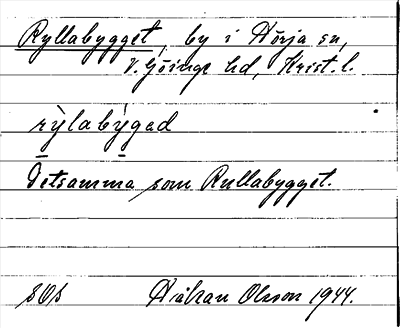 Ryllabygget, by i Hörja sn,
V. Göinge hd, Krist. l.
rỳlabỳgad
Detsamma som Rullabygget.
SOS Håkan Olsson 1944.